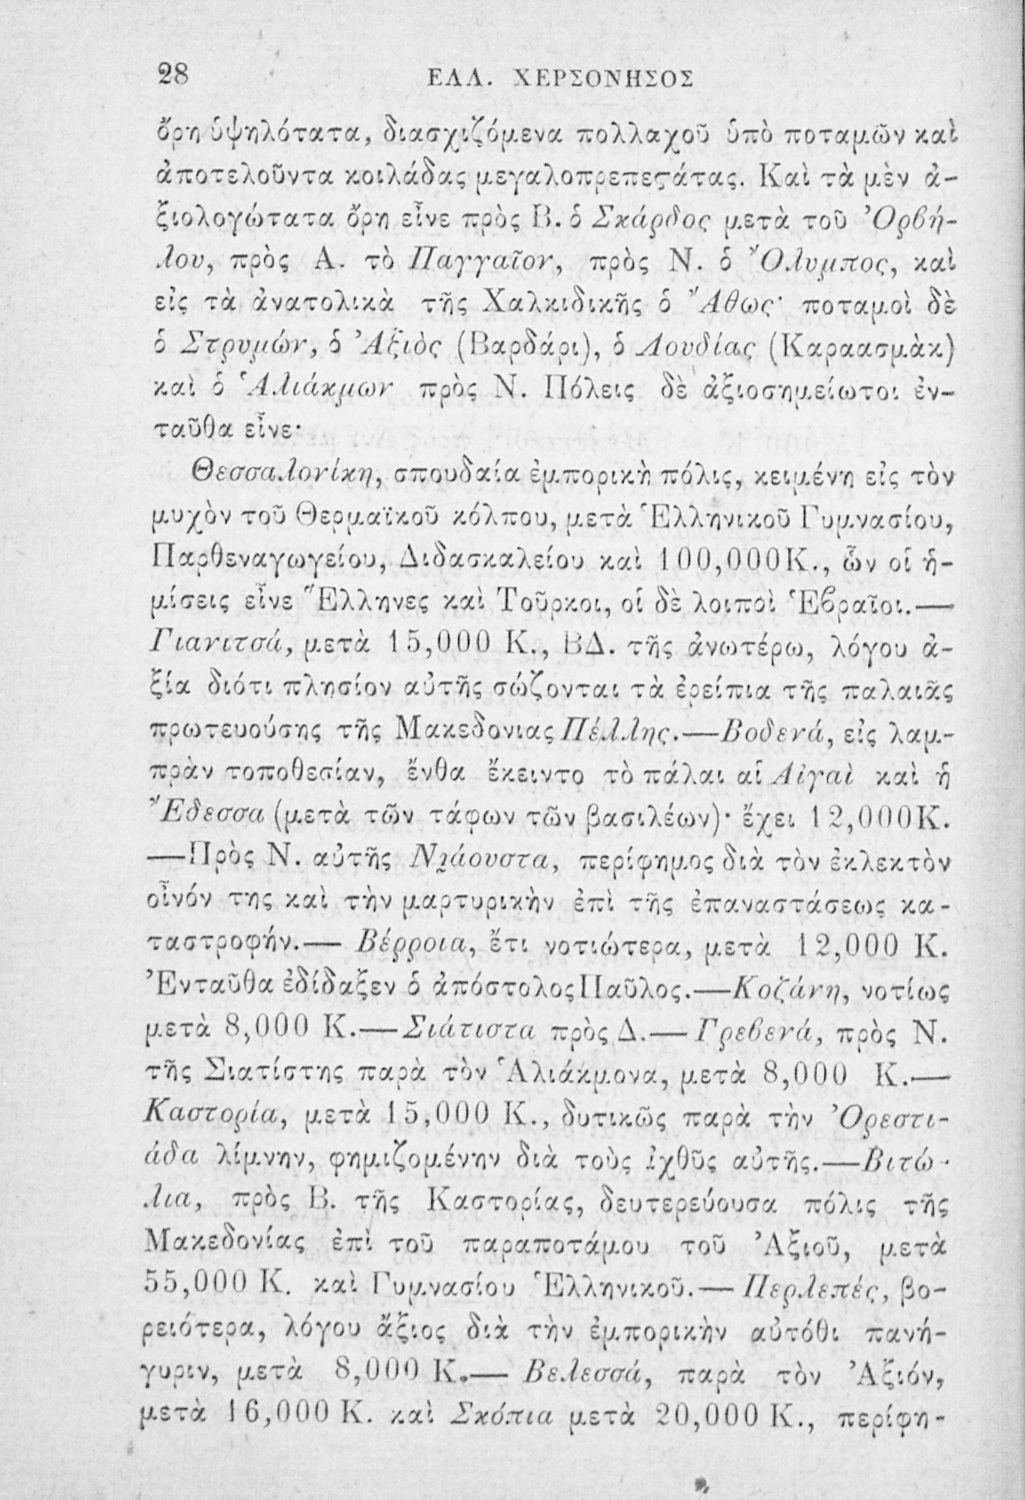 28 ΕΛΛ. ΧΕΡΣΟΝΗΣΟΣ
ὄρη ὑψηλότατα, διασχιζόμενα πολλαχοῦ ὑπὸ ποταμῶν καὶ
ἀποτελοῦντα κοιλάδας μεγαλοπρεπεςάτας. Καὶ τὰ μὲν ἀ-
ξιολογώτατα ὄρη εἶνε πρὸς Β. ὁ Σκάρδος μετὰ τοῦ Ὀρβή-
λου, πρὸς Α. τὸ Παγγαῖον, πρὸς Ν. ὁ Ὄλυμπος, καὶ
εἰς τὰ ἀνατολικὰ τῆς Χαλκιδικῆς ὁ Ἄθως· ποταμοὶ δὲ
ὁ Στρυμών, ὁ Ἀξιὸς (Βαρδάρι), ὁ Λουδίας (Καραασμὰκ)
καὶ ὁ Ἁλιάκμων πρὸς Ν. Πόλεις δὲ ἀξιοσημείωτοι ἐν-
ταῦθα εἶνε·
Θεσσαλονίκη, σπουδαία ἐμπορικὴ πόλις, κειμένη εἰς τὸν
μυχὸν τοῦ Θερμαϊκοῦ κόλπου, μετὰ Ἑλληνικοῦ Γυμνασίου,
Παρθεναγωγείου, Διδασκαλείου καὶ 100,000Κ., ὧν οἱ ἡ-
μίσεις εἶνε Ἕλληνες καὶ Τοῦρκοι, οἱ δὲ λοιποὶ Ἑβραῖοι.—
Γιανιτσά, μετὰ 15,000 Κ., ΒΔ. τῆς ἀνωτέρω, λόγου ἀ-
ξία διότι πλησίον αὐτῆς σώζονται τὰ ἐρείπια τῆς παλαιᾶς
πρωτευούσης τῆς Μακεδονιας Πέλλης.—Βοδενά, εἰς λαμ-
πρὰν τοποθεσίαν, ἔνθα ἔκειντο τὸ πάλαι αἱ Αἰγαὶ καὶ ἡ
Ἔδεσσα (μετὰ τῶν τάφων τῶν βασιλέων)· ἔχει 12,000Κ.
—Πρὸς Ν. αὐτῆς Νιάουστα, περίφημος διὰ τὸν ἐκλεκτὸν
οἶνόν της καὶ τὴν μαρτυρικὴν ἐπὶ τῆς ἐπαναστάσεως κα-
ταστροφήν.— Βέῤῥοια, ἔτι νοτιώτερα, μετὰ 12,000 Κ.
Ἐνταῦθα ἐδίδαξεν ὁ ἀπόστολος Παῦλος.—Κοζάνη, νοτίως
μετὰ 8,000 Κ.—Σιάτιστα πρὸς Δ.—Γρεβενά, πρὸς Ν.
τῆς Σιατίστης παρὰ τὸν Ἁλιάκμονα, μετὰ 8,000 Κ.—
Καστορία, μετὰ 15,000 Κ., δυτικῶς παρὰ τὴν Ὀρεστι-
άδα λίμνην, φημιζομένην διὰ τοὺς ἰχθῦς αὐτῆς.—Βιτώ-
λια, πρὸς Β. τῆς Καστορίας, δευτερεύουσα πόλις τῆς
Μακεδονίας ἐπὶ τοῦ παραποτάμου τοῦ Ἀξιοῦ, μετὰ
55,000 Κ. καὶ Γυμνασίου Ἑλληνικοῦ.—Περλεπές, βο-
ρειότερα, λόγου ἄξιος διὰ τὴν ἐμπορικὴν αὐτόθι πανή-
γυριν, μετὰ 8,000 Κ.— Βελεσσά, παρὰ τὸν Ἀξιόν,
μετὰ 16,000 Κ. καὶ Σκόπια μετὰ 20,000 Κ., περίφη-